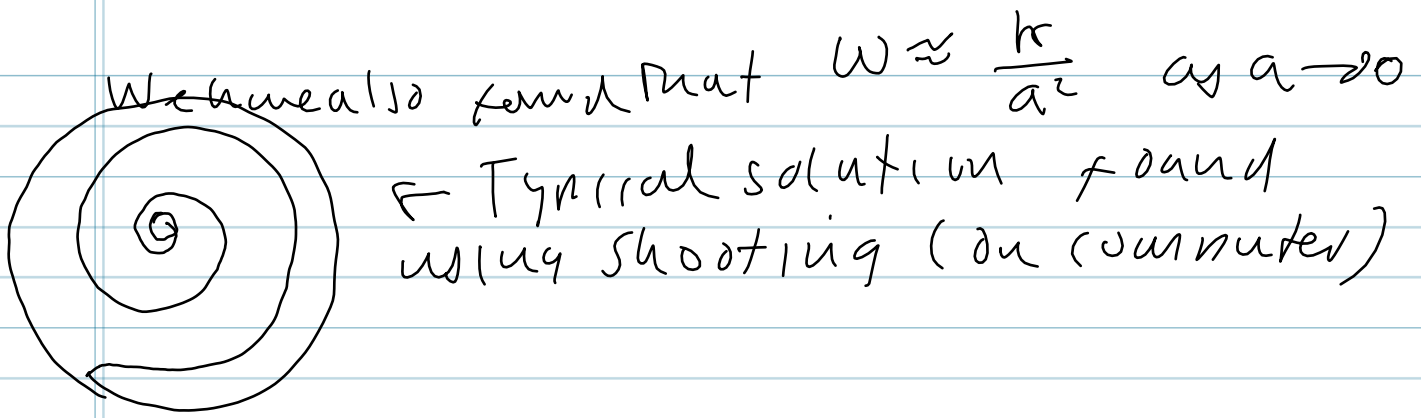 We have also found that ω ≈ k/a² as a → 0
← Typical solution found
using shooting (on computer)